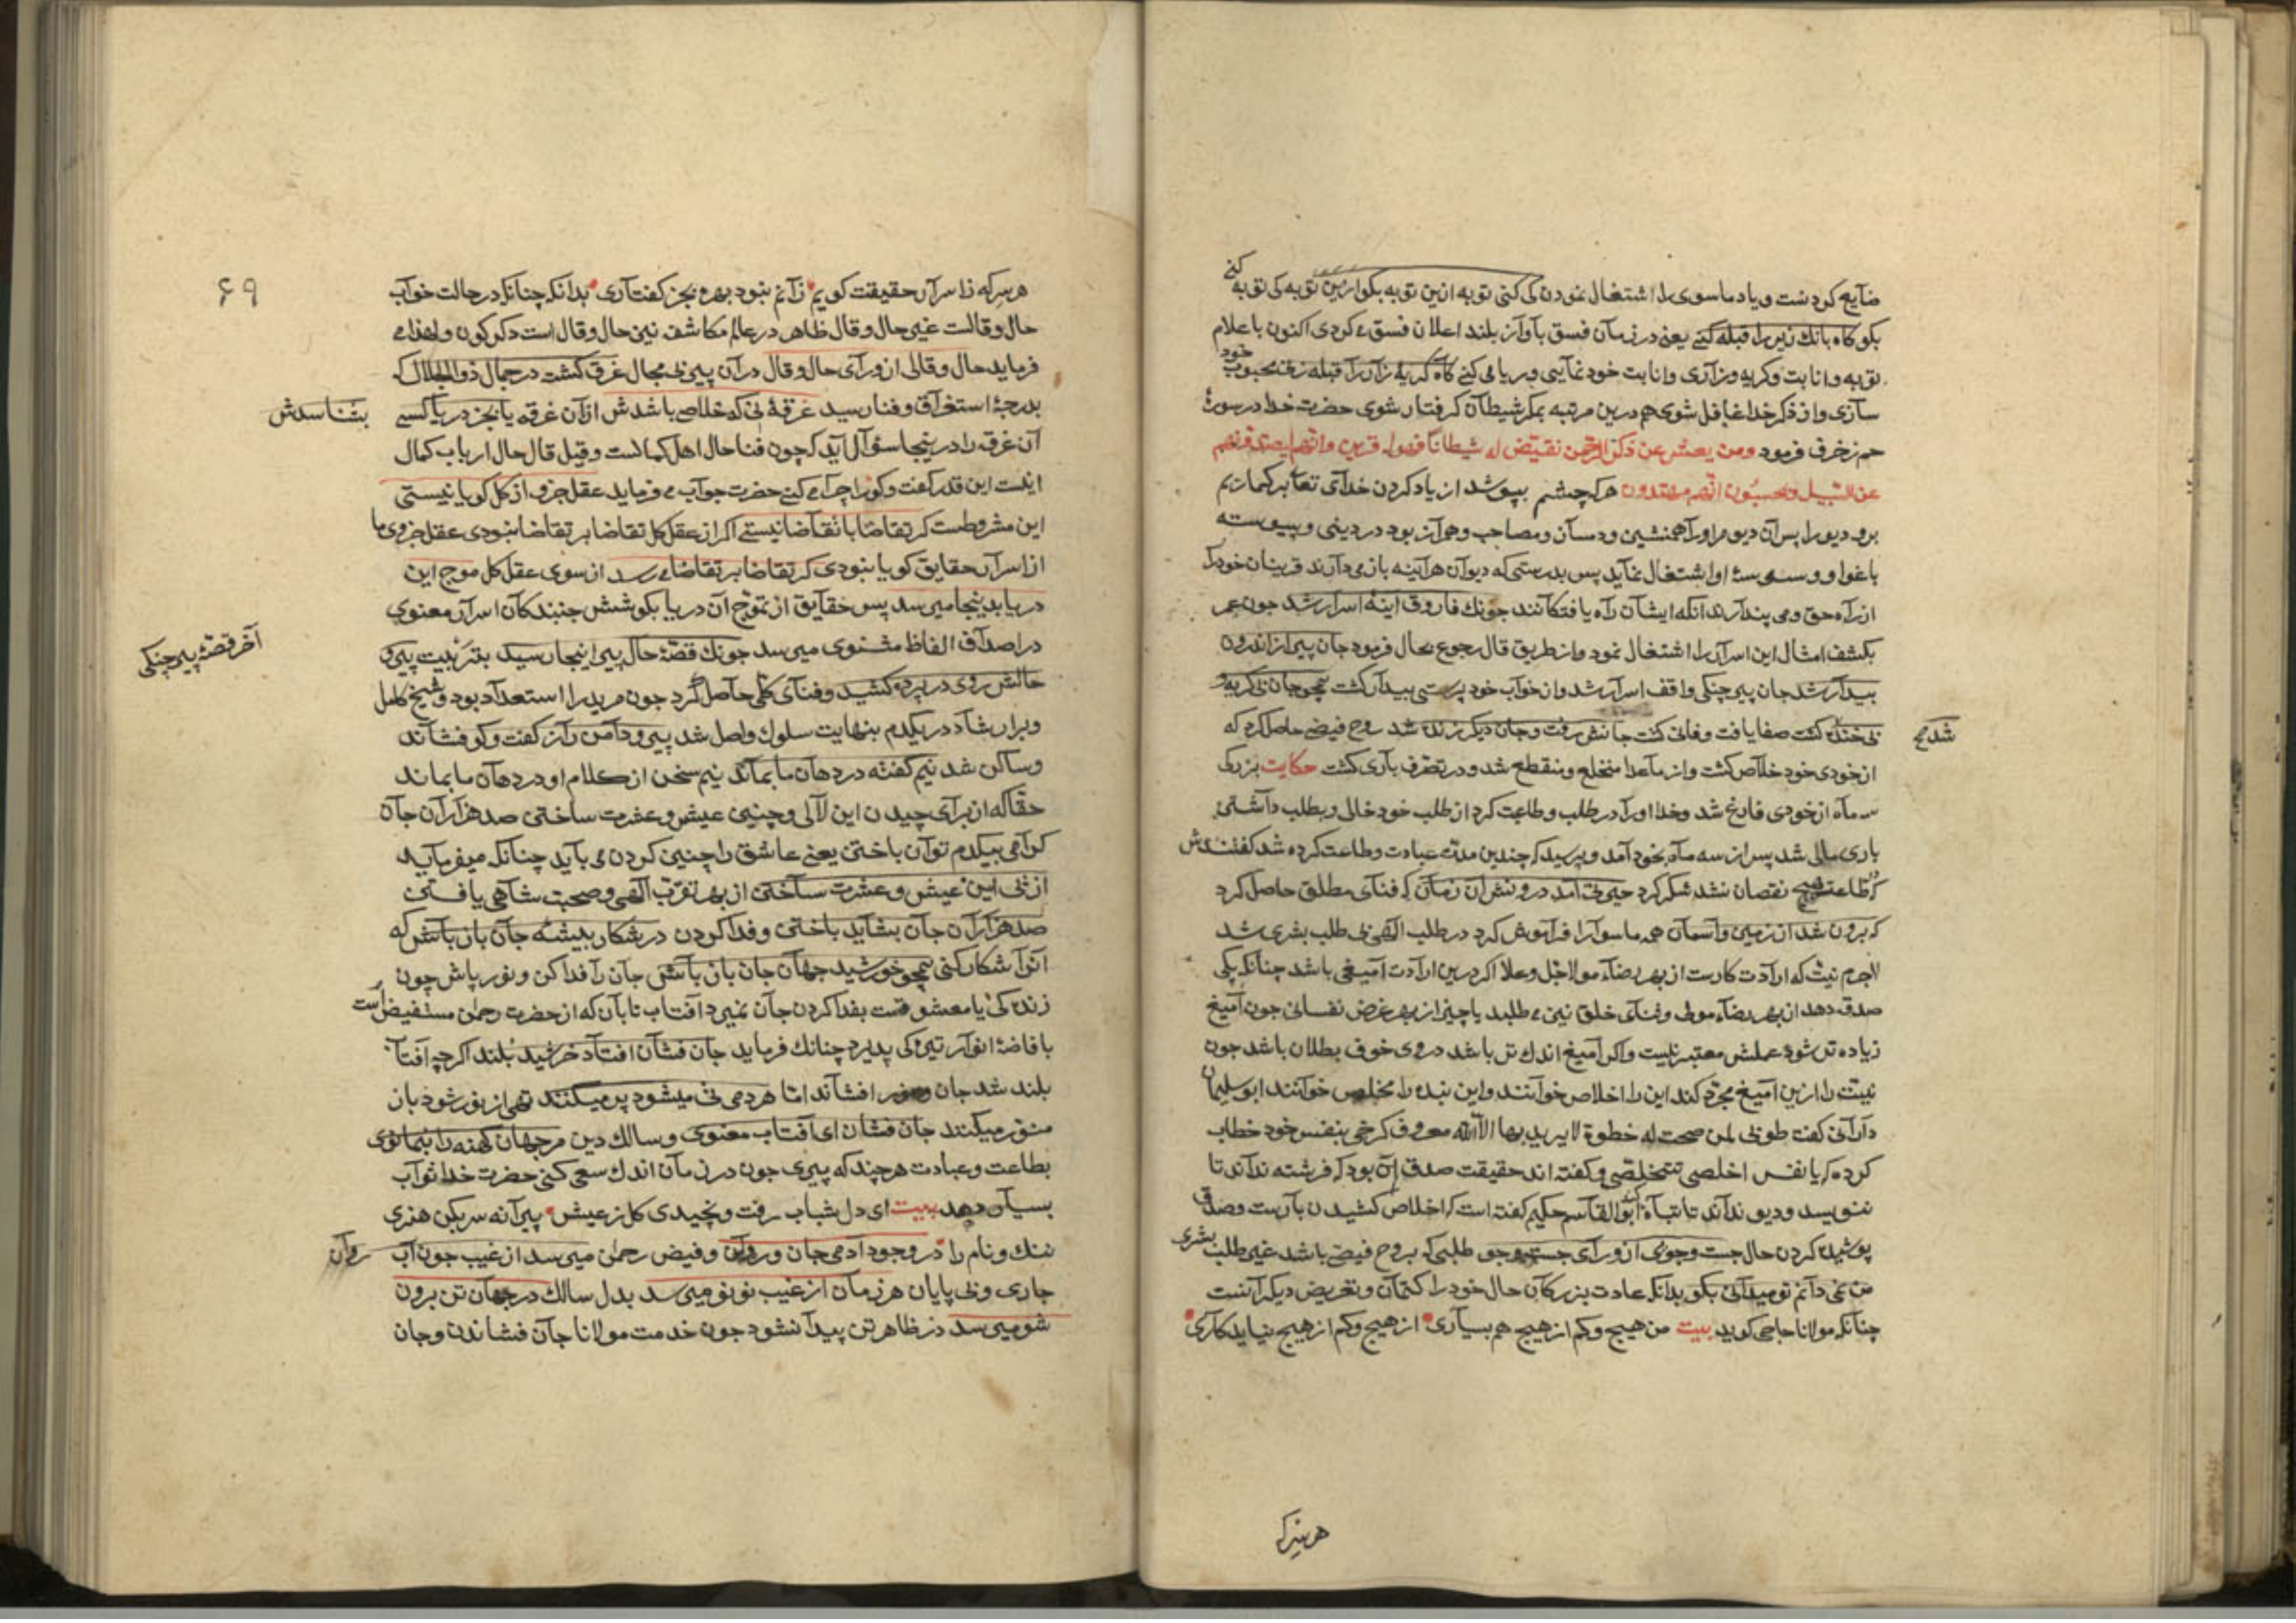 ضایع کردنست و یاد ماسوی را اشتغال نمودن کی کنی توبه ازین توبه بکو ازین توبه کی توبه کنی
بکو کاه بانك زیر را قبله کنی یعنی در زمان فسق بآواز بلند اعلان فسق می کردی اکنون باعلام
توبه و انابت و کریه و زاری و انابت خود نمایی و ریا می کنی کاه کریۀ زار را قبله زنی محبوب خود
سازی و از ذکر خدا غافل شوی هم درین مرتبه بمکر شیطان کرفتار شوی حضرت خدا در سورۀ
حم زخرف فرمود ومن یعش عن ذکر الرحمن نقیض له شیطانا فهو له قرین وانهم لیصدونهم
عن السبیل ویحسبون انهم مهتدون هر که چشم بپوشد از یاد کردن خدای تعا برکماریم
برو دیو را پس آن دیو مر او را همنشین و دمسان و مصاحب و هم آز بود در دینی و پیوسته
باغوا و وسوسۀ او اشتغال نماید پس بدرستی که دیوان هر آینه باز می دارند قرینان خود را
از راه حق و می پندارند آنکه ایشان راه یافتکانند چونك فاروق آینۀ اسرار شد چون عمر
بکشف امثال این اسرار را اشتغال نمود و از طریق قال رجوع بحال فرمود جان پیر از اندرون
بیدار شد جان پیر چنکی واقف اسرار شد و از خواب خود پرستی بیدار کشت همچو جان بی کریه و
بی خنده کشت صفا یافت و فانی کشت جانش رفت و جان دیکر زنده شد روح فیضی حاصل کرد که
شد صح
از خودی خود خلاص کشت و از ماعدا منخلع و منقطع شد و در تصرف باری کشت حکایت بزرکی
سه ماه از خودی فارغ شد و خدا او را در طلب و طاعت کرد از طلب خود خالی و بطلب داشتن
باری مالی شد پس از سه ماه بخود آمد و پرسید که چندین مدت عبادت و طاعت کرده شد کفتندش
که طاعت هیچ نقصان نشد شکر کرد حیرتی آمد درونش آن زمان که فنای مطلق حاصل کرد
که برون شد از زمین و آسمان همه ماسوا را فراموش کرد در طلب الهی بی طلب بشری شد
لاجرم نیت که ارادت کارست از بهر رضاء مولا جل و علا اکر درین ارادت آمیغی باشد چنانکه یکی
صدقه دهد از بهر رضاء مولی و ثنای خلق نیز می طلبد یا چیز از بهر غرض نفسانی چون آمیغ
زیاده تر شود عملش معتبر نیست و اکر آمیغ اندك تر باشد در وی خوف بطلان باشد چون
نیت را ازین آمیغ مجرد کند این را اخلاص خوانند و این بنده را مخلص خوانند ابو سلیمان
دارانی کفت طوبی لمن صحت له خطوة لا یرید بها الا الله معروف کرخی بنفس خود خطاب
کرده که یا نفس اخلصی تتخلصی و کفته اند حقیقت صدق آن بود که فرشته نداند تا
ننویسد و دیو نداند تا تباه کند ابو القاسم حکیم کفته است که اخلاص کشیدن بارست و صدق
پوشیده کردن حال جست و جوی از ورای جست و جو طلبی که بروح فیضی باشد غیر طلب بشری
من نمی دانم تو میدانی بکو بدانکه عادت بزرکان حال خود را کتمان و تعریض دیکرانست
چنانکه مولانا جامی کوید بیت من هیچ و کم از هیچ هم بسیاری از هیچ و کم از هیچ نیاید کاری
هر سر که
۶۹
هر سر که ز اسرار حقیقت کویم زانم نبود بهره بجز کفتاری بدانکه چنانکه در حالت خواب
حال و قالت غیر حال و قال ظاهر در عالم مکاشفه نیز حال و قال است دکر کون و لهذا می
فرماید حال و قالی از ورای حال و قال در آن پیر بی مجال غرق کشت در جمال ذو الجلال که
بدرجۀ استغراق و فنا رسید غرقۀ نی که خلاص باشدش از آن غرقه یا بجز دریا کسی بشناسدش
آن غرق را در ینجا سؤال آید که چون فنا حال اهل کمالست و قیل قال حال ارباب کمال
اینست این قدر کفت و کو را چرا می کنی حضرت جواب می فرماید عقل جزو از کل کویا نیستی
این مشروطست کر تقاضا با تقاضا نیستی اکر از عقل کل تقاضا بر تقاضا نبودی عقل جزوی ما
از اسرار حقایق کویا نبودی کر تقاضا بر تقاضا می رسد از سوی عقل کل موج این
دریا بدینجا میرسد پس حقایق از تموج آن دریا بکوشش جنبند کان اسرار معنوی
در اصداف الفاظ مثنوی میرسد چونك قصۀ حال پیر اینجا رسید بتربیت پیر و
آخر قصۀ پیر چنکی
حالش روی در پرده کشید و فنای کلی حاصل کرد چون مرید را استعداد بود و شیخ کامل
و برار شاد در یکدم بنهایت سلوك واصل شد پیر دامن را ز کفت و کو فشاند
و ساکن شد نیم کفته در دهان ما بماند نیم سخن از کلام او در دهان ما بماند
حقا که از برای چیدن این لآلی و چنین عیش و عشرت ساختن صد هزاران جان
کرامی بیکدم توان باختن یعنی عاشق را چنین کردن می باید چنانکه میفرماید
از پی این عیش و عشرت ساختن از بهر تقرب الهی و صحبت شاهی یافتن
صد هزاران جان بشاید باختن و فدا کردن در شکار بیشۀ جان باز باش که
انوار شکار کنی همچو خورشید جهان جان باز باش جان را فدا کن و نور پاش چون
زنده کی با معشوقست بفدا کردن جان نمیرد آفتاب تابان که از حضرت رحمن مستفیض است
بافاضۀ انوار تیره کی پذیرد چنانك فرماید جان فشان افتاد خرشید بلند اکر چه آفتا
بلند شد جان و نور افشاند اما هر دمی تی میشود پر میکنند تهی از نور شود باز
منور میکنند جان فشان ای آفتاب معنوی و سالك دین مر جهان کهنه را بنما نوی
بطاعت و عبادت هر چند که پیری چون در زمان اندك سعی کنی حضرت خدا ثواب
بسیار دهد بیت ای دل شباب رفت و نچیدی کل ز عیش پیرانه سر بکن هنری
ننك و نام را در وجود آدمی جان و روان و فیض رحمن میرسد از غیب چون آب روان
جاری و بی پایان هر زمان از غیب نو نو میرسد بدل سالك در جهان تن برون
شو میرسد در ظاهر تن پیدا نشود چون خدمت مولانا جان فشاندن و جان